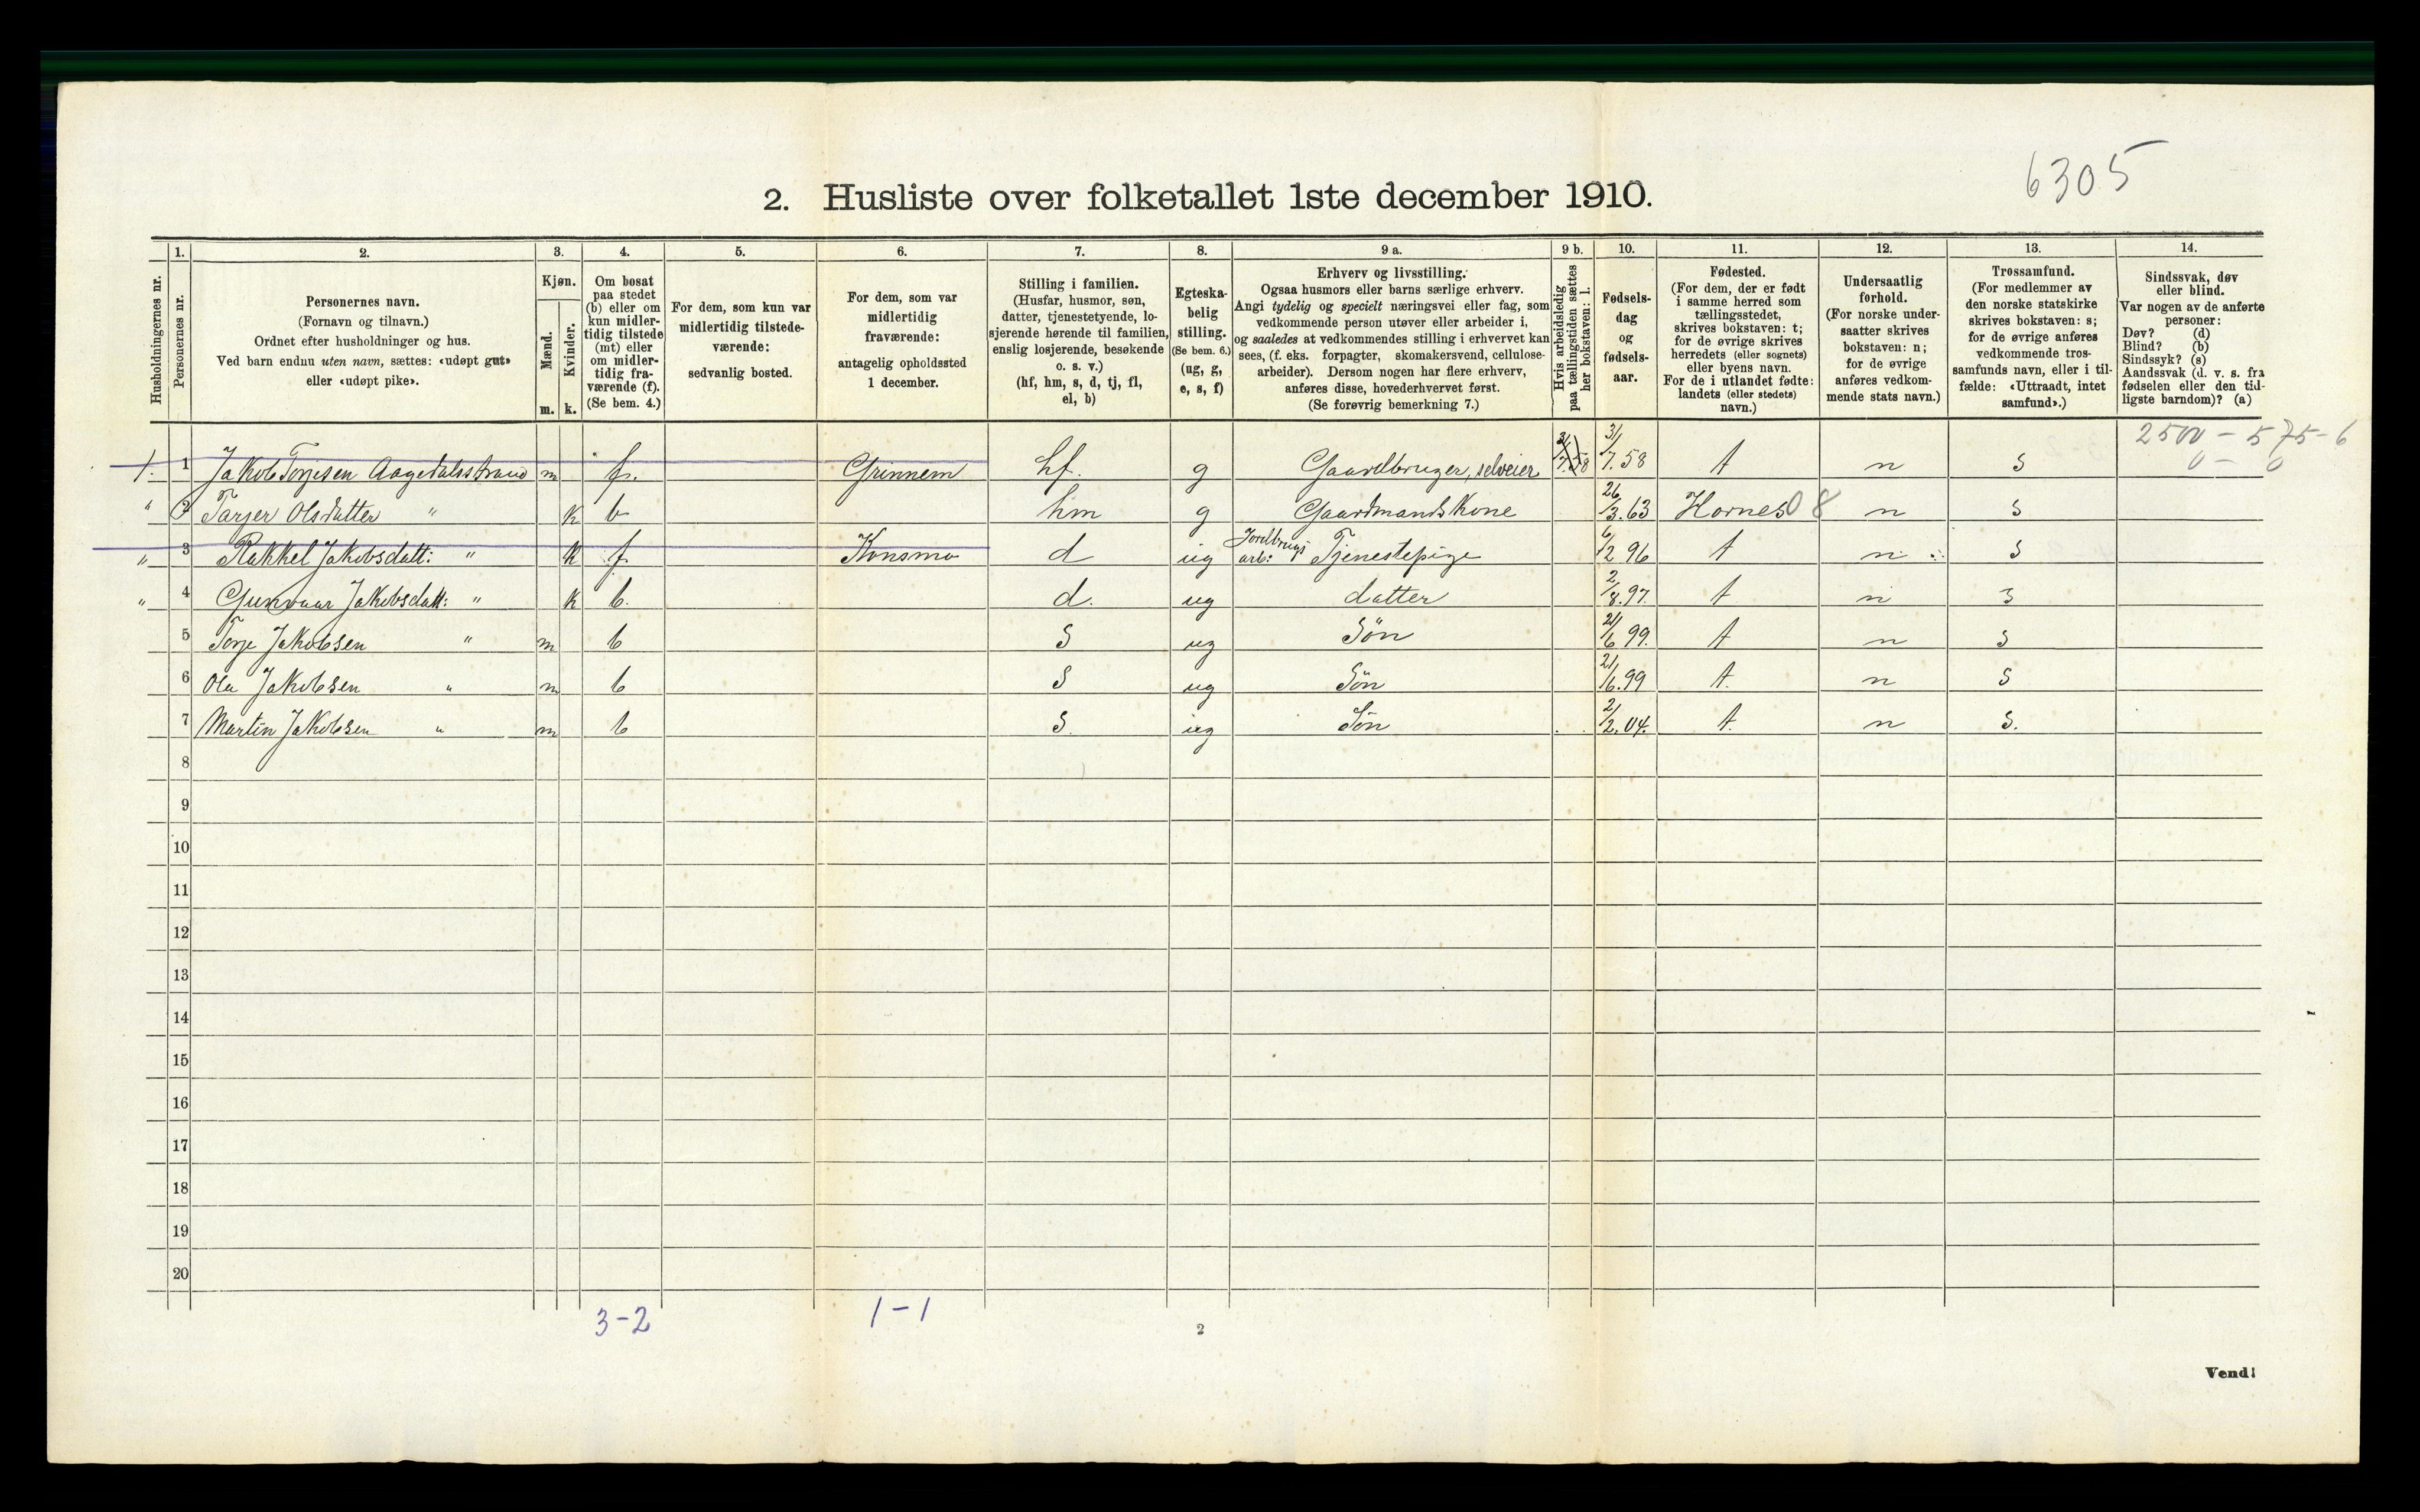 6305
2. Husliste over folketallet 1ste december 1910.
1. 2. 3. 4. 5. 6. 7. 8. 9 a. 9 b. 10. 11. 12. 13. 14.
Husholdningernes nr.
Personernes nr.
Personernes navn.
(Fornavn og tilnavn.)
Ordnet efter husholdninger og hus.
Ved barn endnu uten navn, sættes: «udøpt gut»
eller «udøpt pike».
Kjøn.
Mænd.
Kvinder.
m. k.
Om bosat
paa stedet
(b) eller om
kun midler-
tidig tilstede
(mt) eller
om midler-
tidig fra-
værende (f).
(Se bem. 4.)
For dem, som kun var
midlertidig tilstede-
værende:
sedvanlig bosted.
For dem, som var
midlertidig
fraværende:
antagelig opholdssted
1 december.
Stilling i familien.
(Husfar, husmor, søn,
datter, tjenestetyende, lo-
sjerende hørende til familien,
enslig losjerende, besøkende
o. s. v.)
(hf, hm, s, d, tj, fl,
el, b)
Egteska-
belig
stilling.
(Se bem. 6.)
(ug, g,
e, s, f)
Erhverv og livsstilling.
Ogsaa husmors eller barns særlige erhverv.
Angi tydelig og specielt næringsvei eller fag, som
vedkommende person utøver eller arbeider i,
og saaledes at vedkommendes stilling i erhvervet kan
sees, (f. eks. forpagter, skomakersvend, cellulose-
arbeider). Dersom nogen har flere erhverv,
anføres disse, hovederhvervet først.
(Se forøvrig bemerkning 7.)
Hvis arbeidsledig
paa tællingstiden sættes
her bokstaven: l.
Fødsels-
dag
og
fødsels-
aar.
Fødested.
(For dem, der er født
i samme herred som
tællingsstedet,
skrives bokstaven: t;
for de øvrige skrives
herredets (eller sognets)
eller byens navn.
For de i utlandet fødte:
landets (eller stedets)
navn.)
Undersaatlig
forhold.
(For norske under-
saatter skrives
bokstaven: n;
for de øvrige
anføres vedkom-
mende stats navn.)
Trossamfund.
(For medlemmer av
den norske statskirke
skrives bokstaven: s;
for de øvrige anføres
vedkommende tros-
samfunds navn, eller i til-
fælde: «Uttraadt, intet
samfund».)
Sindssvak, døv
eller blind.
Var nogen av de anførte
personer:
Døv? (d)
Blind? (b)
Sindssyk? (s)
Aandssvak (d. v. s. fra
fødselen eller den tid-
ligste barndom)? (a)
2500 - 575 - 6
0 - 0
1. 1 Jakob Torjesen Aagedalsstrand m f. Grinnem hf. g Gaardbruger, selveier 31/7.58 31/7.58 t n s
" 2 Tarjer Olsdatter " k b hm g Gaardmandskone 26/3.63 Hornes 08 n s
" 3 Rakkel Jakobsdatt: " k f. Konsmo d ug Jordbrugs arb: Tjenestepige 6/2 96 t n s
" 4 Gunvaar Jakobsdatt: " k b. d. ug datter 2/8.97. t n s
5 Torje Jakobsen " m b s ug Søn 21/6 99. t n s
6 Ola Jakobsen " m b s ug Søn 21/6.99 t. n s
7 Martin Jakobsen " m b s. ug Søn 2/2.04. t. n s.
8
9
10
11
12
13
14
15
16
17
18
19
20
3-2 1-1
2
Vend!